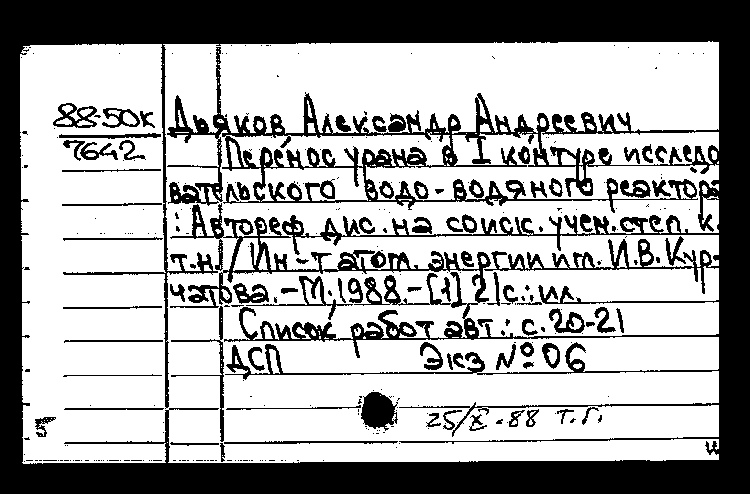 88-50к Дьяков Александр Андреевич
7642 Перенос урана в I контуре исследо
вательского водо-водяного реактора
: Автореф. дис. на соиск. учен. степ. к.
т.н. / Ин-т атом. энергии им. И.В. Кур-
чатова. - М., 1988. - [1] 21 с.: ил.
Список работ авт.: с. 20-21
ДСП Экз № 06
25/X-88 т.г.